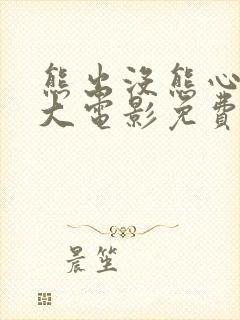 熊出没熊心
大电影免費
晨笙